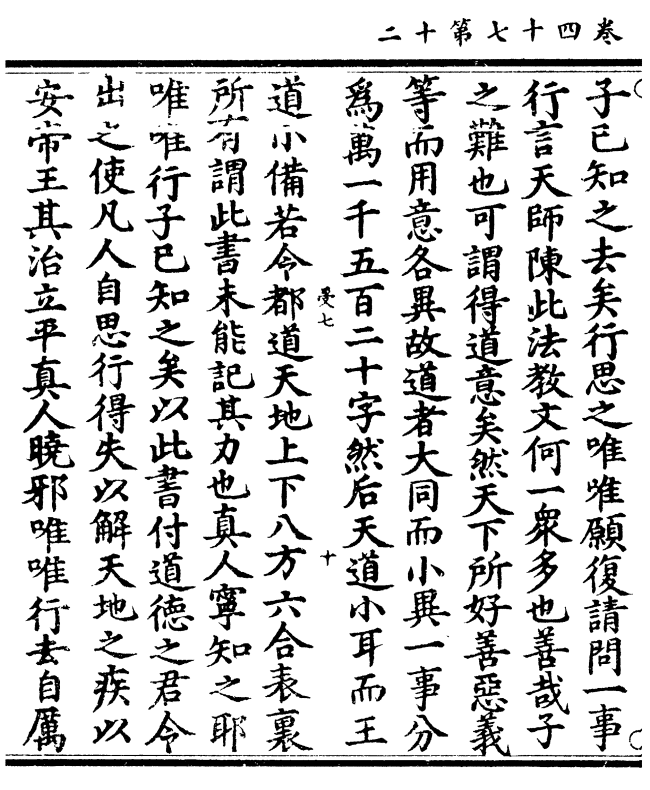 卷四十七第十二
子已知之去矣行思之唯唯願復請問一事
行言天師陳此法教文何一衆多也善哉子
之難也可謂得道意矣然天下所好善惡義
等而用意各異故道者大同而小異一事分
爲萬一千五百二十字然后天道小耳而王
受七
十
道小備若令都道天地上下八方六合表裏
所有謂此書未能記其力也真人寧知之耶
唯唯行子已知之矣以此書付道德之君令
出之使凡人自思行得失以解天地之疾以
安帝王其治立平真人曉邪唯唯行去自厲